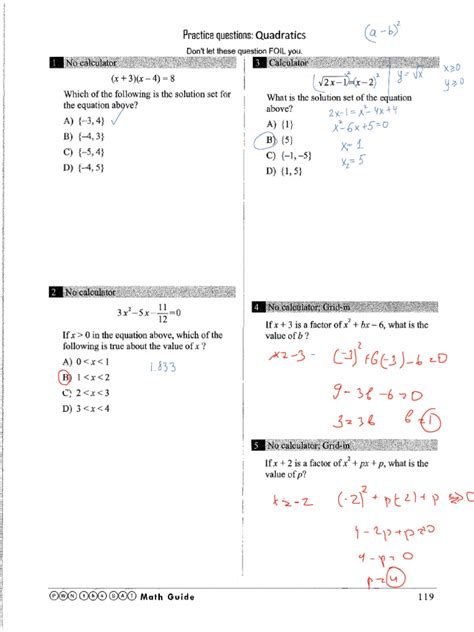 Practice questions: Quadratics
(a-b)²
Don't let these question FOIL you.
1 No calculator
(x+3)(x−4) = 8
Which of the following is the solution set for
the equation above?
A) {−3, 4} ✓
B) {−4, 3}
C) {−5, 4}
D) {−4, 5}
2 No calculator
3x²−5x−11/12=0
If x > 0 in the equation above, which of the
following is true about the value of x ?
A) 0 < x < 1
1.833
B) 1 < x < 2
C) 2 < x < 3
D) 3 < x < 4
3 Calculator
√2x−1² = (x−2)²
y = √x
x≥0
y≥0
What is the solution set of the equation
above?
2x-1 = x²-4x+4
A) {1}
x²-6x+5=0
B) {5}
x₁=1
C) {−1, −5}
x₂=5
D) {1, 5}
4 No calculator; Grid-in
If x + 3 is a factor of x² + bx − 6, what is the
value of b ?
x=-3
(-3)²+b(-3)-6=0
9-3b-6=0
3=3b
b=1
5 No calculator; Grid-in
If x + 2 is a factor of x² + px + p, what is the
value of p?
x=-2
(-2)²+p(-2)+p=0
4-2p+p=0
4-p=0
p=4
PWN THE SAT Math Guide
119